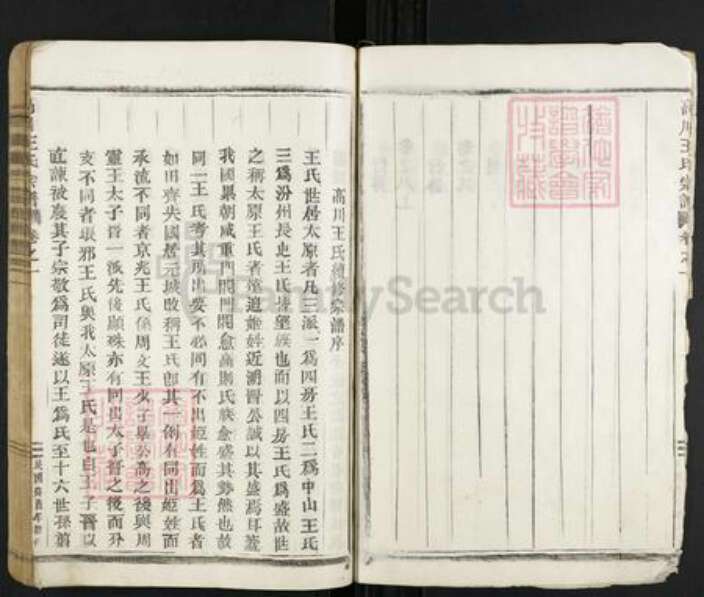 高川王氏續修宗譜序
王氏世居太原者凡三派一為四房王氏二為中山王氏
三為汾州長史王氏皆望族也而以四房王氏為盛故世
之稱太原王氏者遠追姬姓近溯晉公誠以其盛焉耳蓋
我國累朝咸重門閥門閥愈高則氏族愈盛其勢然也故
同一王氏考其所出要不必同有不出姬姓而為王氏者
如田齊失國居元城改稱王氏即其一例有同出姬姓而
承流不同者京兆王氏係周文王少子畢公高之後與周
靈王太子晉一派先後顯殊亦有同出太子晉之後而分
支不同者瑯邪王氏與我太原王氏是也自王子晉以
直諫被廢其子宗敬為司徒遂以王為氏至十六世孫翦
高川王氏宗譜 卷之一
FamilySearch